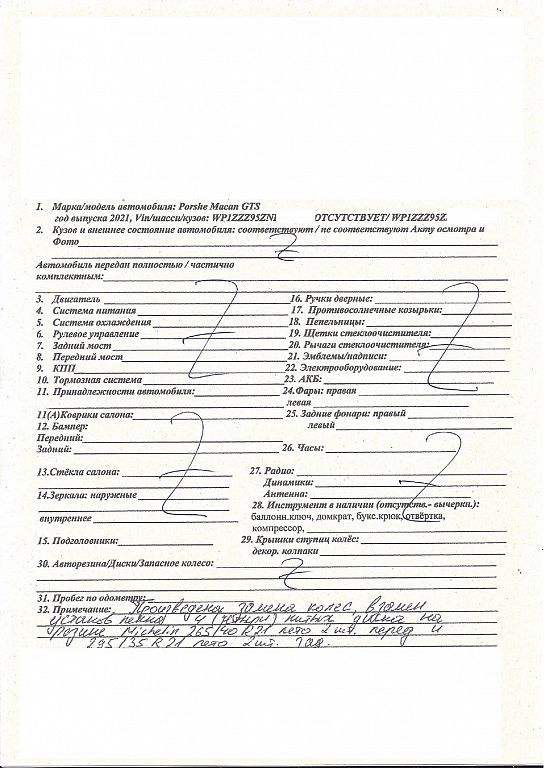 1. Марка/модель автомобиля: Porshe Macan GTS
год выпуска 2021, Vin/шасси/кузов: WP1ZZZ95ZN ОТСУТСТВУЕТ/ WP1ZZZ95Z
2. Кузов и внешнее состояние автомобиля: соответствуют / не соответствуют Акту осмотра и
Фото
Автомобиль передан полностью / частично
комплектным:
3. Двигатель
4. Система питания
5. Система охлаждения
6. Рулевое управление
7. Задний мост
8. Передний мост
9. КПП
10. Тормозная система
11. Принадлежности автомобиля:
11(А)Коврики салона:
12. Бампер:
Передний:
Задний:
13.Стёкла салона:
14.Зеркала: наружные
внутреннее
15. Подголовники:
16. Ручки дверные:
17. Противосолнечные козырьки:
18. Пепельницы:
19. Щетки стеклоочистителя:
20. Рычаги стеклоочистителя:
21. Эмблемы/надписи:
22. Электрооборудование:
23. АКБ:
24.Фары: правая
левая
25. Задние фонари: правый
левый
26. Часы:
27. Радио:
Динамики:
Антенна:
28. Инструмент в наличии (отсутств.- вычеркн.):
баллонн.ключ, домкрат, букс.крюк, отвёртка,
компрессор,
29. Крышки ступиц колёс:
декор. колпаки
30. Авторезина/Диски/Запасное колесо:
31. Пробег по одометру:
32. Примечание: Произведена замена колес, взамен
4 (четыри) литых диска на
резине Michelin 265/40 R21 лето 2шт. перед и
295/35 R21 лето 2шт. зад.